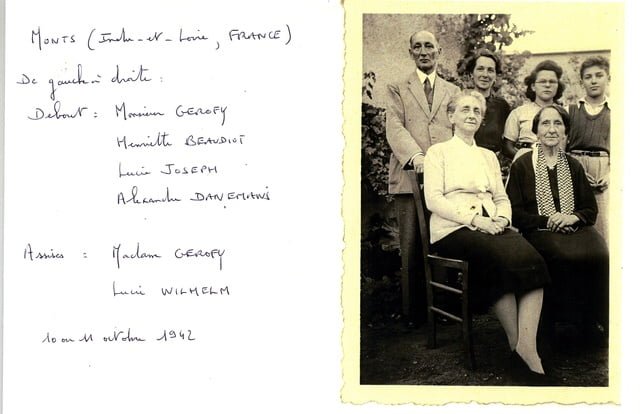 MONTS (Indre-et-Loire, FRANCE)
De gauche à droite :
Debout : Monsieur GEROFY
Henriette BEAUDIOT
Lucie JOSEPH
Alexandre DANEMANS
Assises : Madame GEROFY
Lucie WILHELM
10 ou 11 octobre 1942